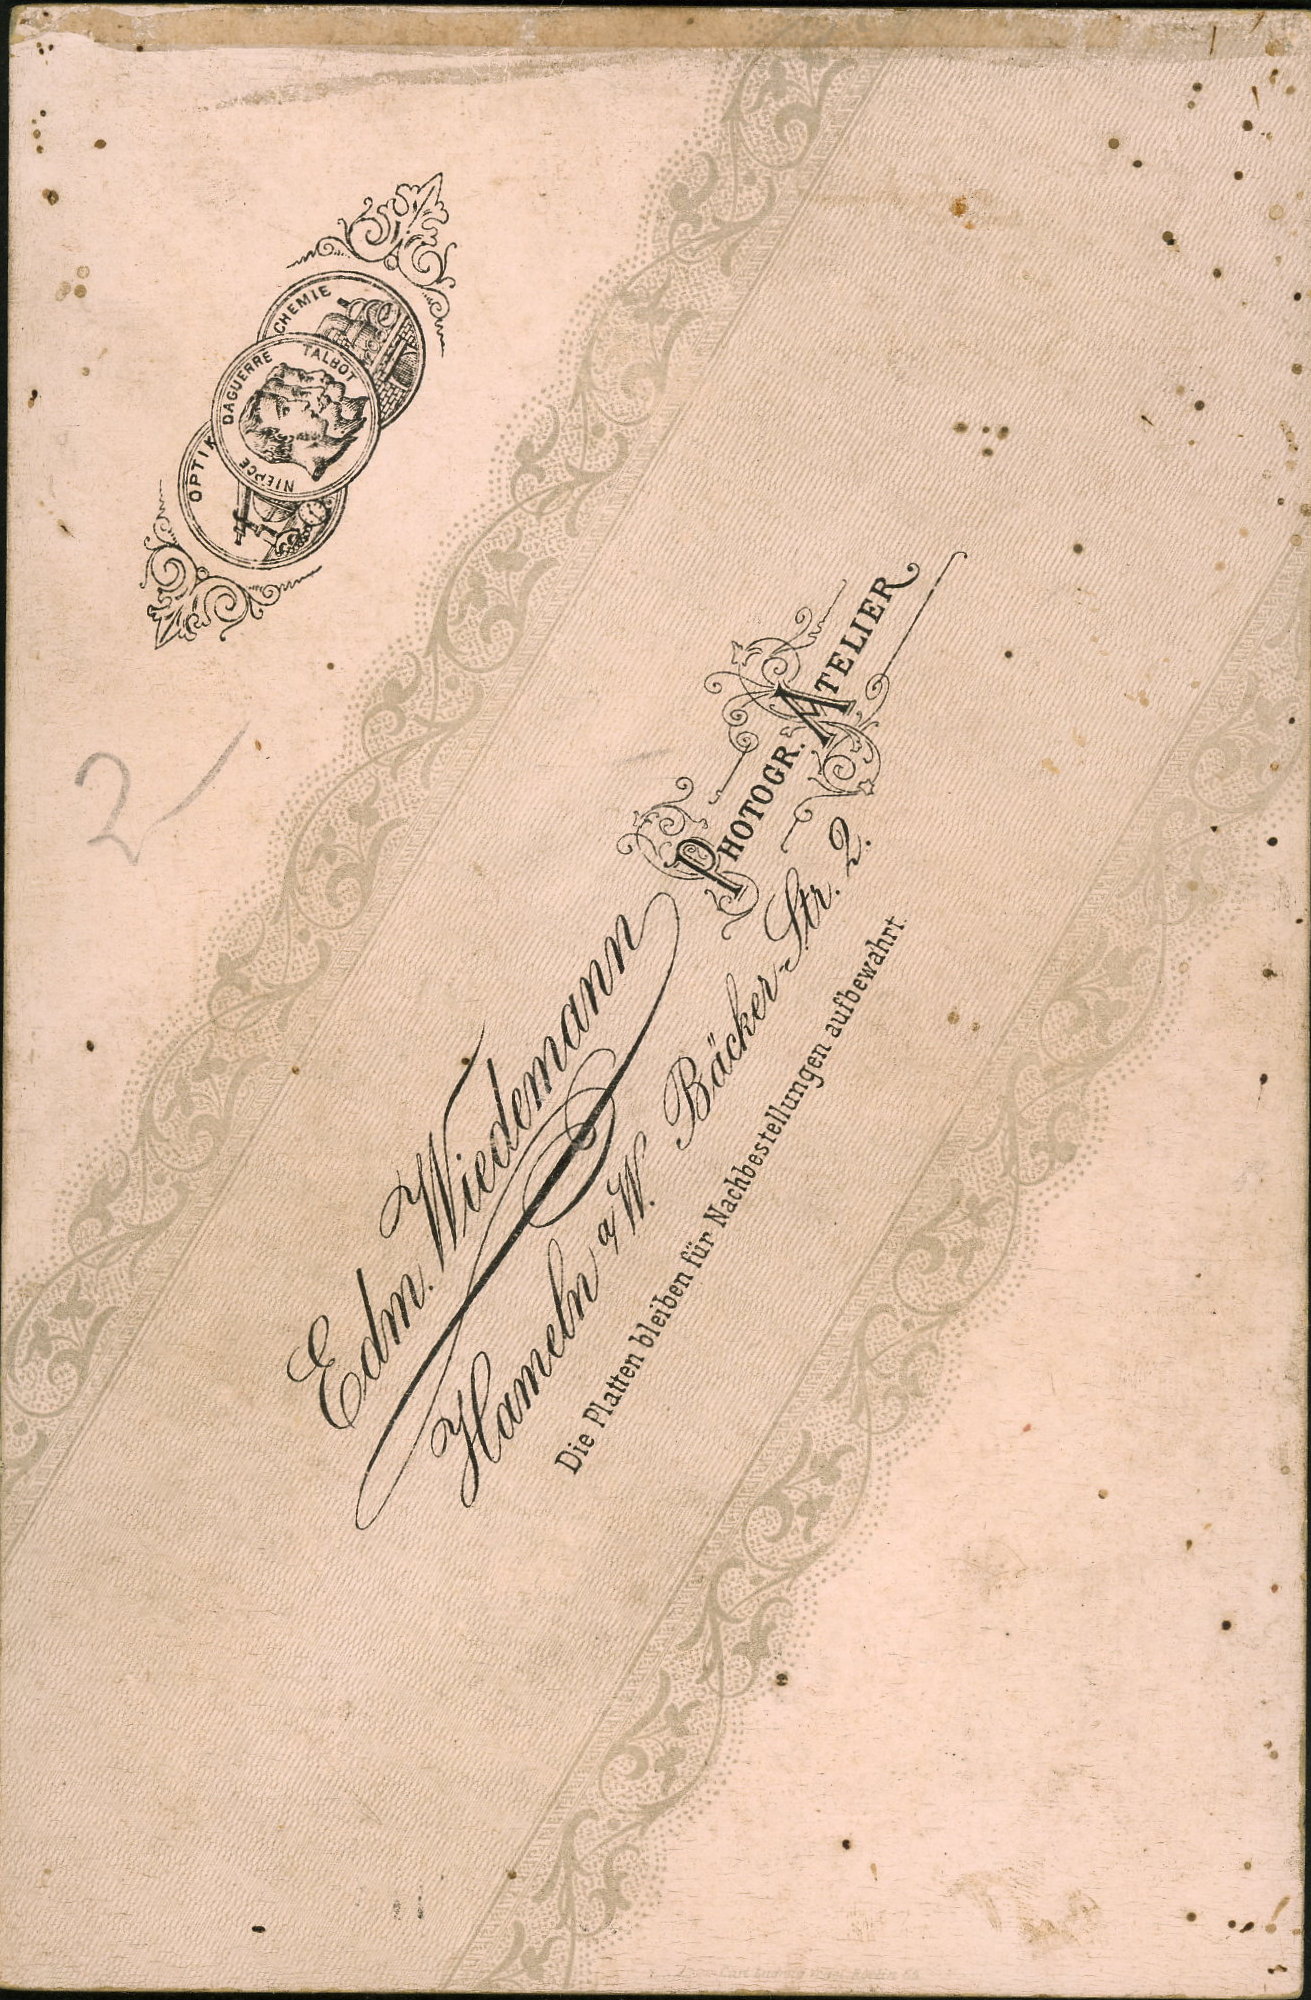 CHEMIE
DAGUERRE TALBOT
NIEPCE
OPTIK
2
Edm. Wiedemann
PHOTOGR. ATELIER
Hameln a/W. Bäcker-Str. 2.
Die Platten bleiben für Nachbestellungen aufbewahrt.